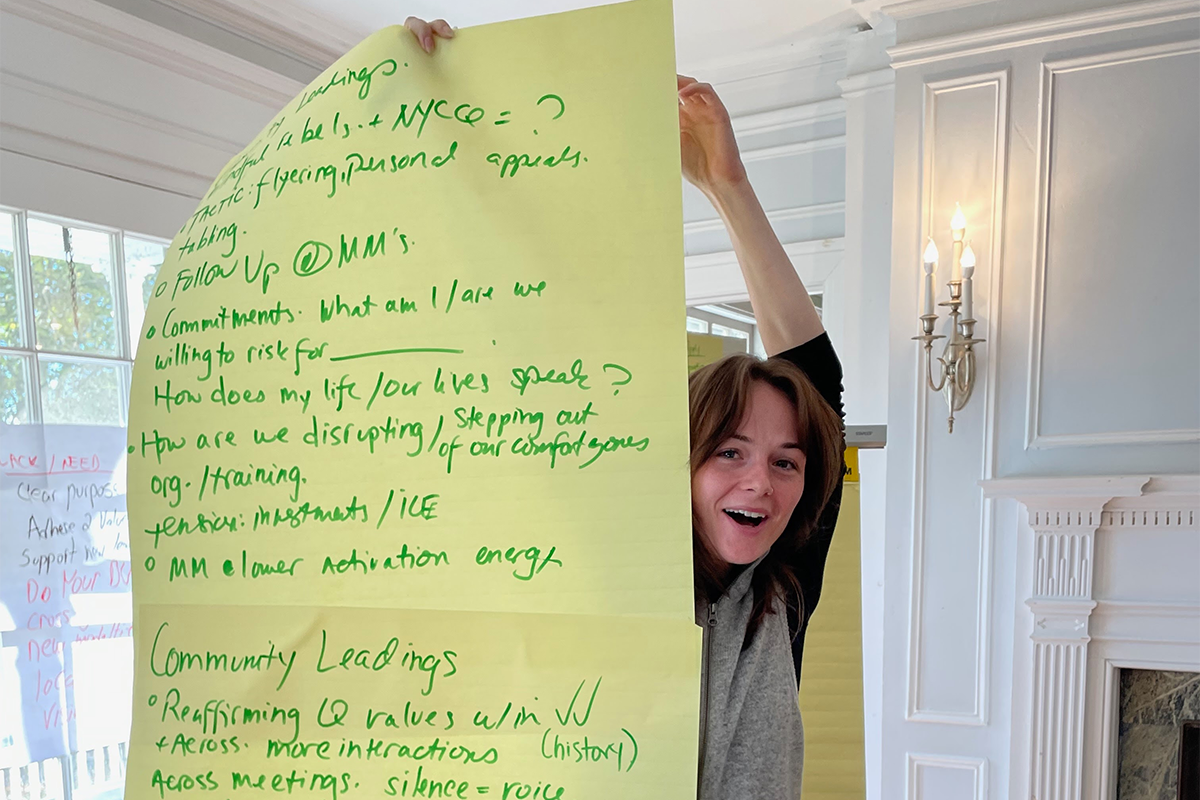 Leadings.
rebels. + NYCCQ = ?
TACTIC: flyering, personal appeals.
tabling.
Follow Up @ MM's.
Commitments. What am I / are we
willing to risk for ________.
How does my life / our lives speak?
How are we disrupting / Stepping out
of our comfort zones
org. / training.
tension: investments / ICE
MM @ lower Activation energy
Community Leadings
Reaffirming Q values w/in
+ Across. more interactions (history)
Across meetings. silence = voice
LACK / NEED
Clear purpose
Adhere 2
Support new
Do Your
cross
new